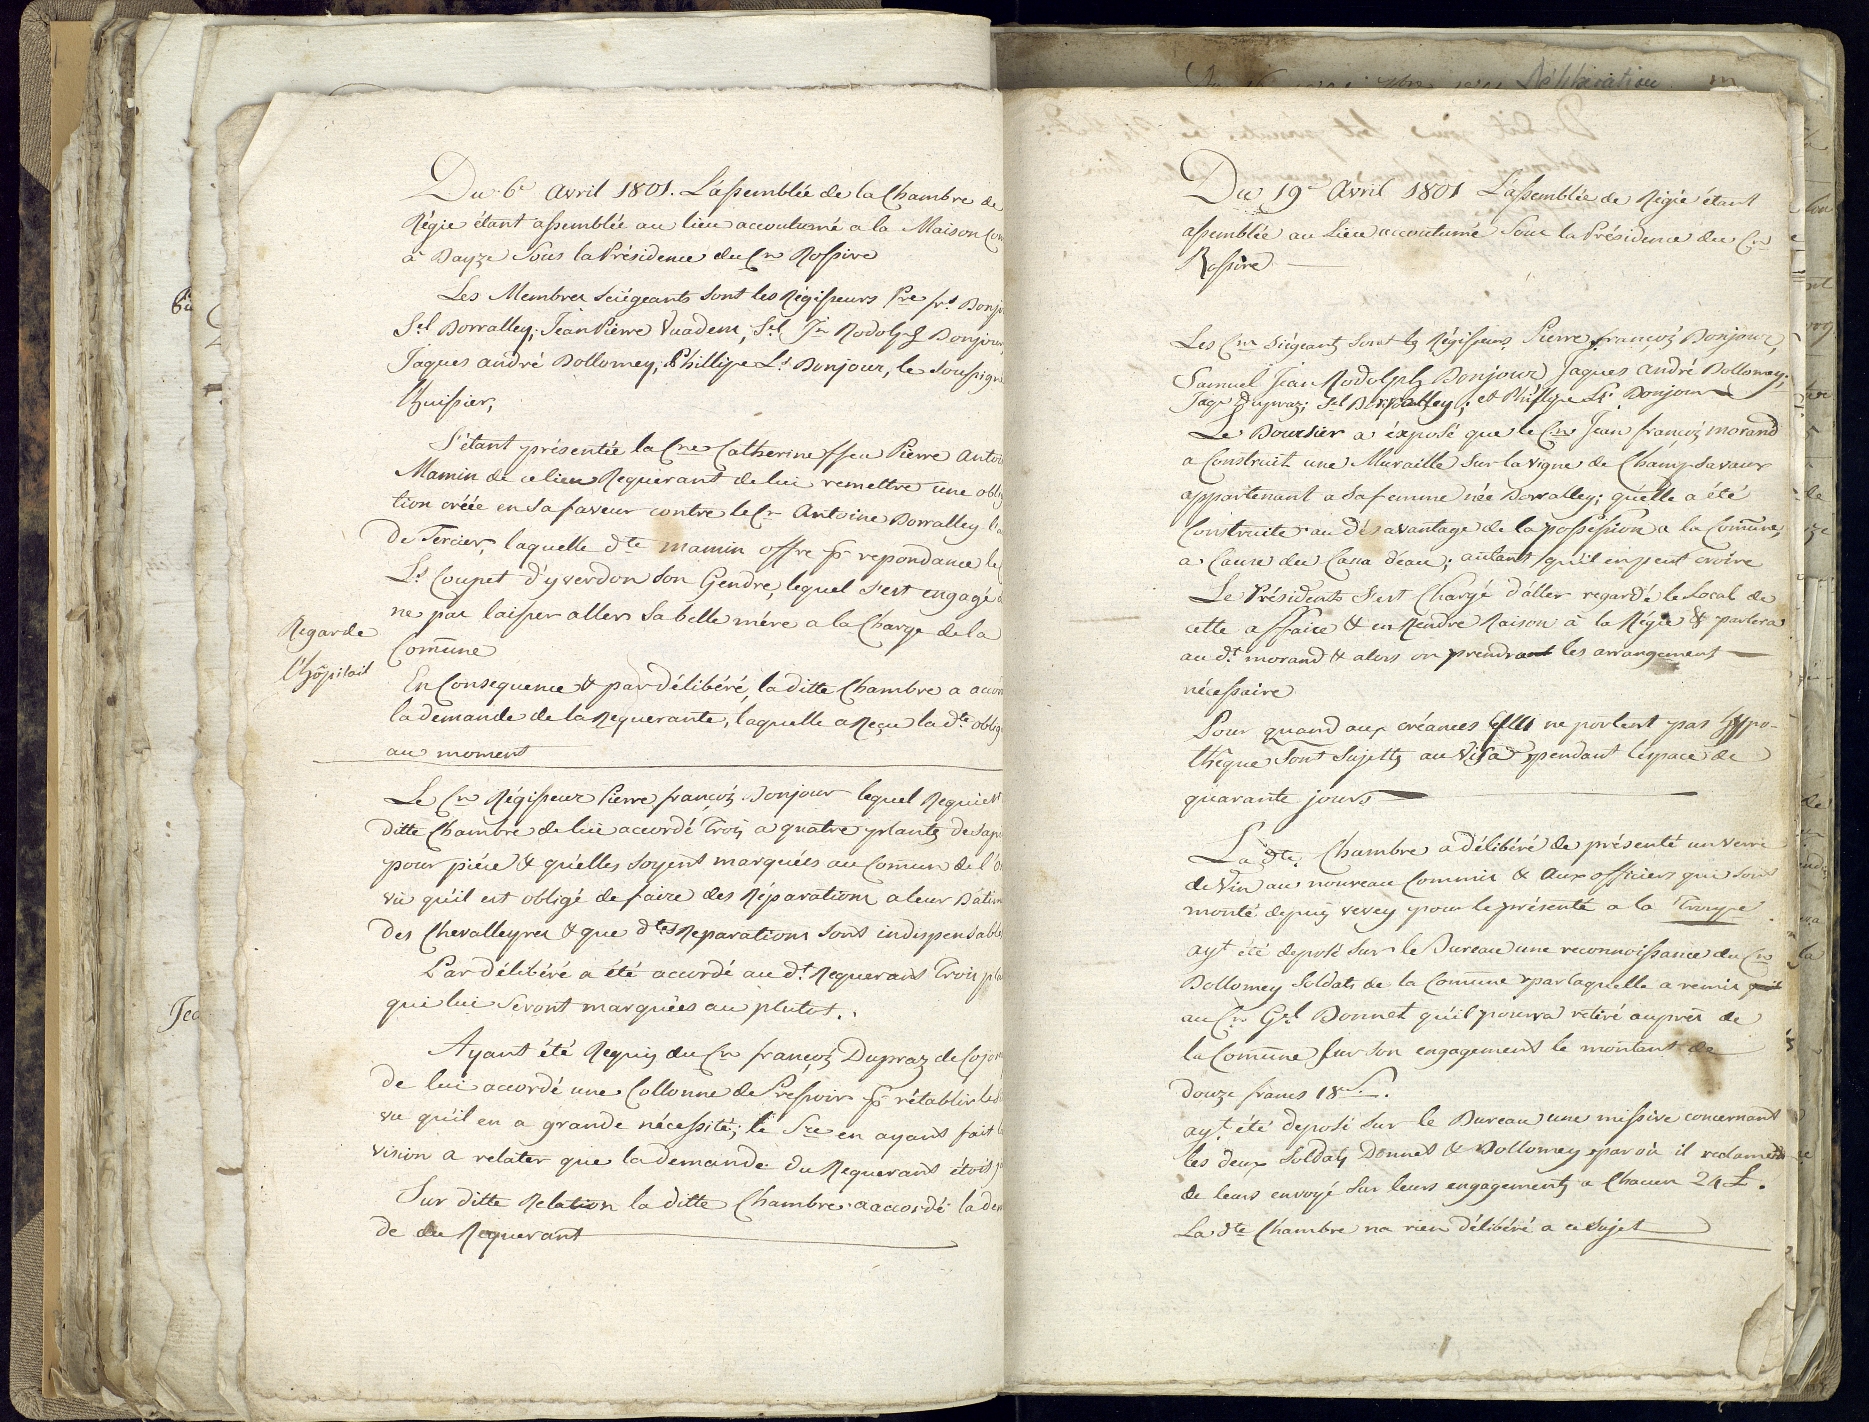 Du 6e Avril 1801. L'assemblée de la Chambre de
Régie étant assemblée au lieu accoutumé a la Maison Com
à Bayze sous la Présidence du Cn Rossire
Les Membres seiégeants sont les Régisseurs Pre frs Bonjo
Sel Borralley, Jean Pierre Vuadens, Sel Jn Rodolph Bonjour,
Jaques andré Dollomey, Phillipe Ls Bonjour, le soussigné
l'huissier,
S'étant présentée la Cne Catherine ffeu Pierre Antoi
Mamin de ce lieu Requerant de lui remettre une oblig
tion créée en sa faveur contre le Cn Antoine Borralley
de Tercier, laquelle dte mamin offre pr repondance le
Ls Coupet d'yverdon son Gendre, lequel s'est engagé
ne pas laisser aller sa belle mére a la Charge de la
Com̄une
Regarde
l'hôpitail
En Consequence & par délibéré, la ditte Chambre a accor
la demande de la Requerante, laquelle a Reçu la dte oblig
au moment
Le Cn Régisseur Pierre françois Bonjour lequel Requiert
ditte Chambre de lui accordé Trois a quatre plantes de sap
pour piéce & qu'elles soyent marquées au Com̄un de l'
vû qu'il est obligé de faire des Réparations a leur Bâtim
des Chevalleyres & que dtes Reparations sont indispensable
Par délibéré a été accordé au dt Requerant Trois pla
qui lui seront marquées au plutot.
Ayant été Requis du Cn françois Dupraz de Cojon
de lui accordé une Collonne de Pressoir pr rétablir le
vu qu'il en a grande nécessité; le Sre en ayant fait
vision a relater que la demande du Requerant étoit
Sur ditte Relation la ditte Chambre a accordé la dem
de du Requerant
Du 19e Avril 1801 L'assemblée de Régie étant
assemblée au Lieu accoutumé sous la Présidence du Cn
Rossire
Les Cns Siégeants sont les Régisseurs Pierre françois Bonjour,
Samuel Jean Rodolph Bonjour, Jaques andré Dollomey;
Jaqs Dupraz; Sel Borralley; et Phillipe Ls Bonjour
Le Boursier a éxposé que le Cn Jean françois morand
a Construit une Muraille sur la vigne de Champ-Savaux
appartenant a sa femme née Borralley; qu'elle a été
Construite au dés avantage de la possession a la Com̄une,
a Cause du Casa d'eau; autant qu'il en peut croire
Le Présidents s'est Chargé d'aller regardé le Local de
cette affaire & en Rendre Raison à la Régie & parlera
au dt morand & alors on prendra les arrangement
nécessaire
Pour quand aux créances elles ne portent pas hypo-
thêque sont sujetts au Visa pendant l'espace de
quarante jours
La dte Chambre a délibéré de présenté un verre
de Vin au nouveau Commis & Aux officiers qui sont
monté depuis vevey pour le présenté a la Troupe
ayt été deposé sur le Bureau une reconnoissance du Cn
Dollomey Soldats de la Commune par laquelle a remis
au Cn Gel Donnet qu'il pourra retiré auprès de
la Com̄une sur son engagement le montant de
douze francs 18 S.
ayt été deposé sur le Bureau une missive concernant
les deux Soldats Donnet & Dollomey par où il reclament
de leurs envoyé sur leurs engagements a Chacun 24 £.
La dte Chambre na rien délibéré a ce sujet